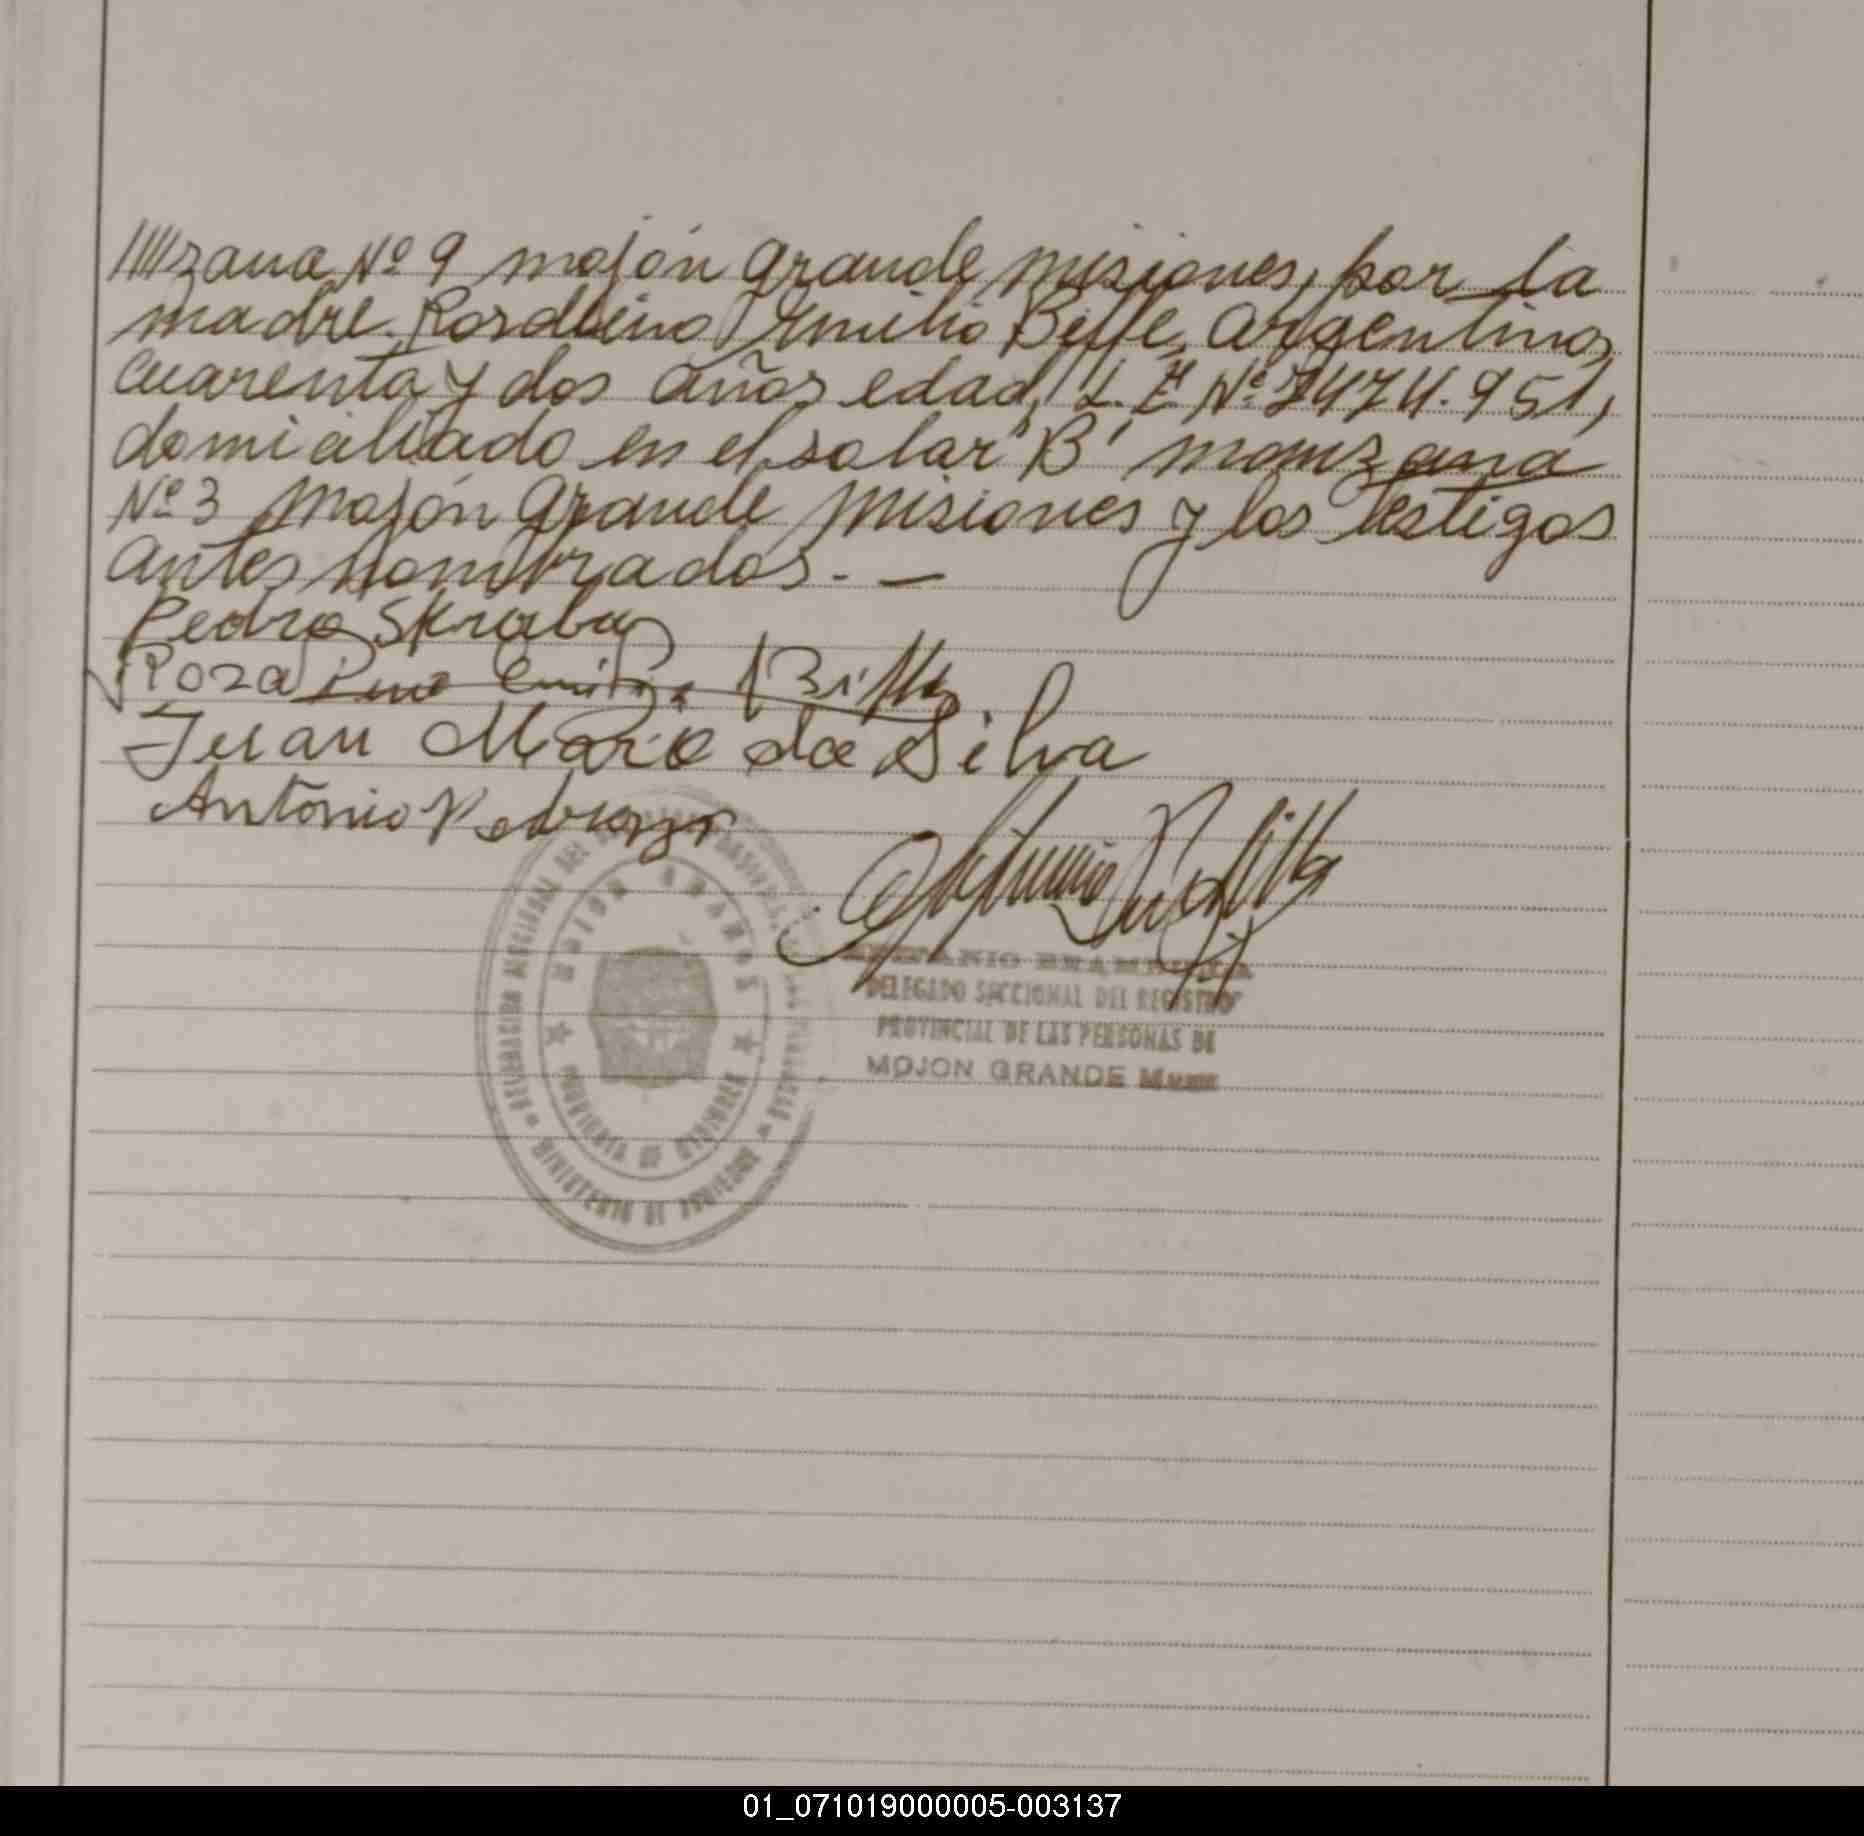 zana Nº 9 mojón grande misiones, por la
madre Emilio argentino,
cuarenta y dos años edad, L.E Nº 7474.951,
domiciliado en el solar "B" manzana
Nº 3 Mojón grande Misiones y los testigos
antes nombrados. —
Pedro Skraba
Roza
Juan Mario da Silva
Antonio
DELEGADO SECCIONAL DEL REGISTRO
PROVINCIAL DE LAS PERSONAS DE
MOJON GRANDE
PROVINCIA DE MISIONES
MINISTERIO DE GOBIERNO
01_071019000005-003137